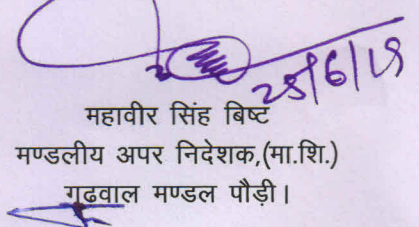 महावीर सिंह बिष्ट
मण्डलीय अपर निदेशक,(मा.शि.)
गढवाल मण्डल पौड़ी।